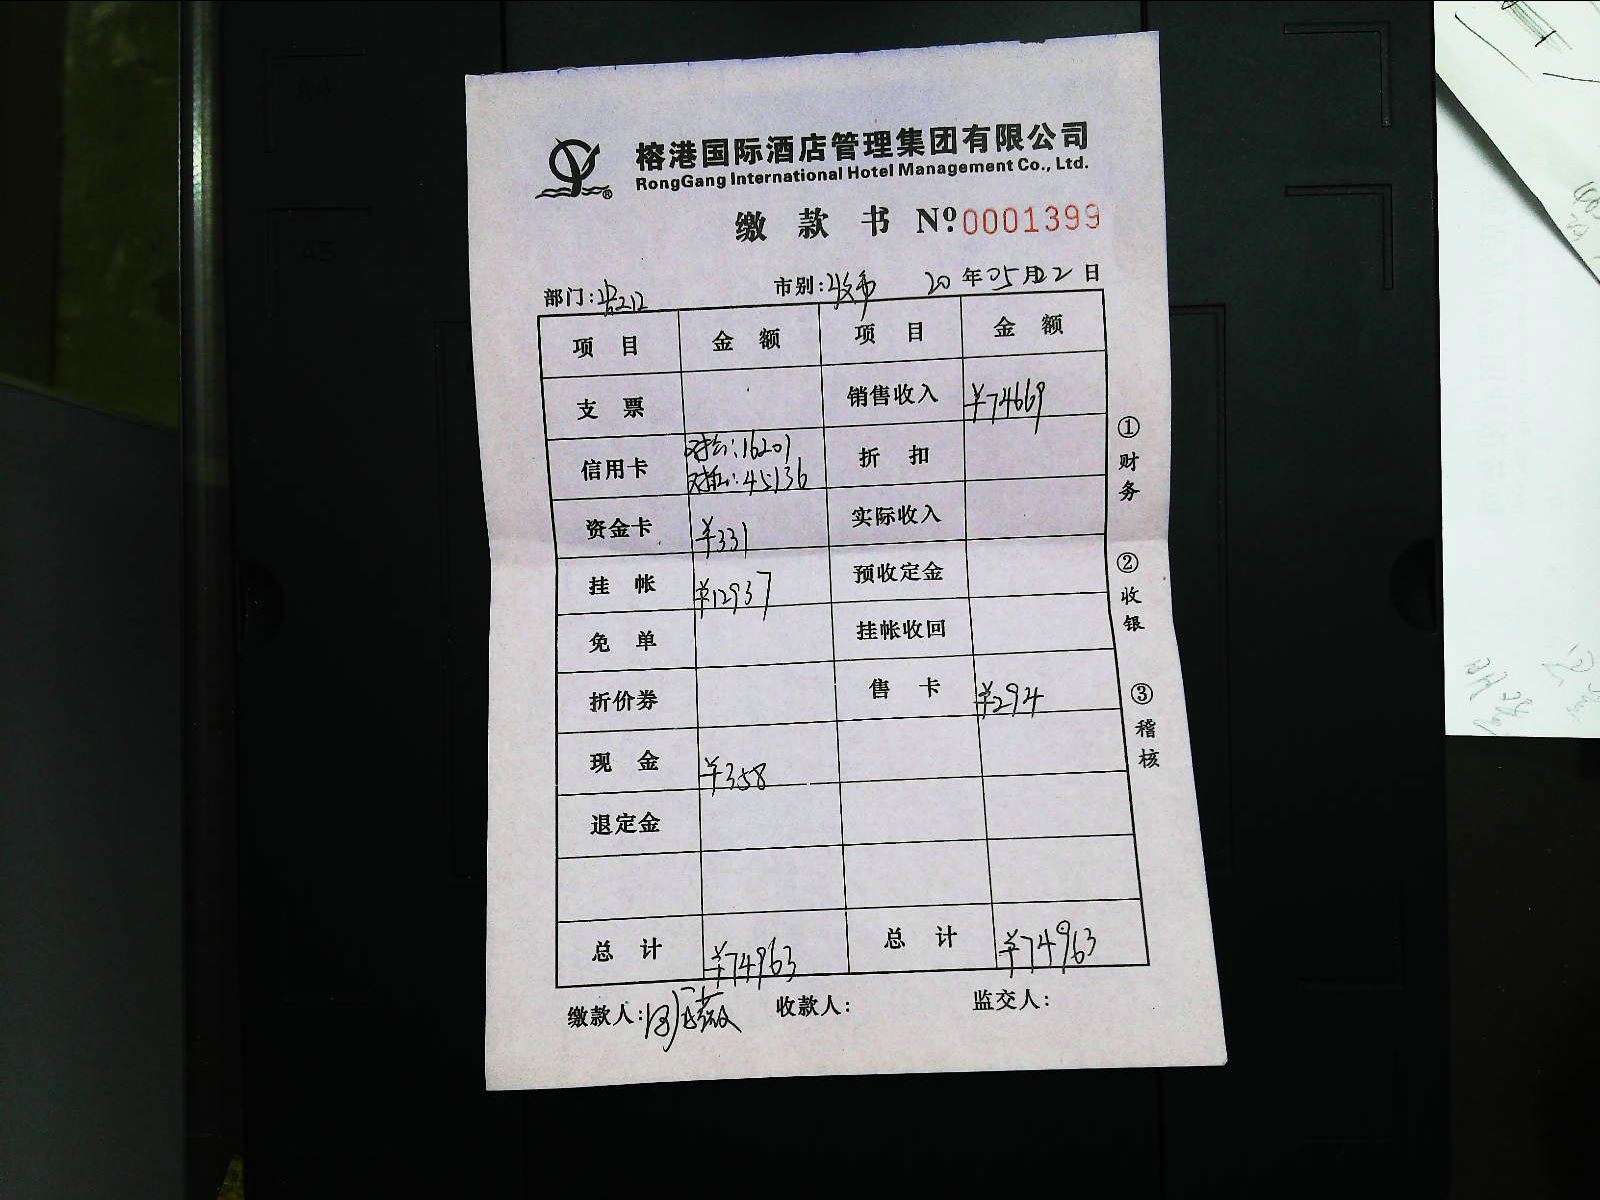 榕港国际酒店管理集团有限公司
RongGang International Hotel Management Co., Ltd.
缴款书 Nº:0001399
部门: 市别: 20年05月22日
项目 金额 项目 金额
支票 销售收入 ¥74669
信用卡 对公:16201 折扣
45136
资金卡 ¥331 实际收入
挂帐 ¥12937 预收定金
免单 挂帐收回
折价券 售卡 ¥294
现金 ¥358
退定金
总计 ¥74963 总计 ¥74963
缴款人: 收款人: 监交人:
①财务
②收银
③稽核
A4
A5